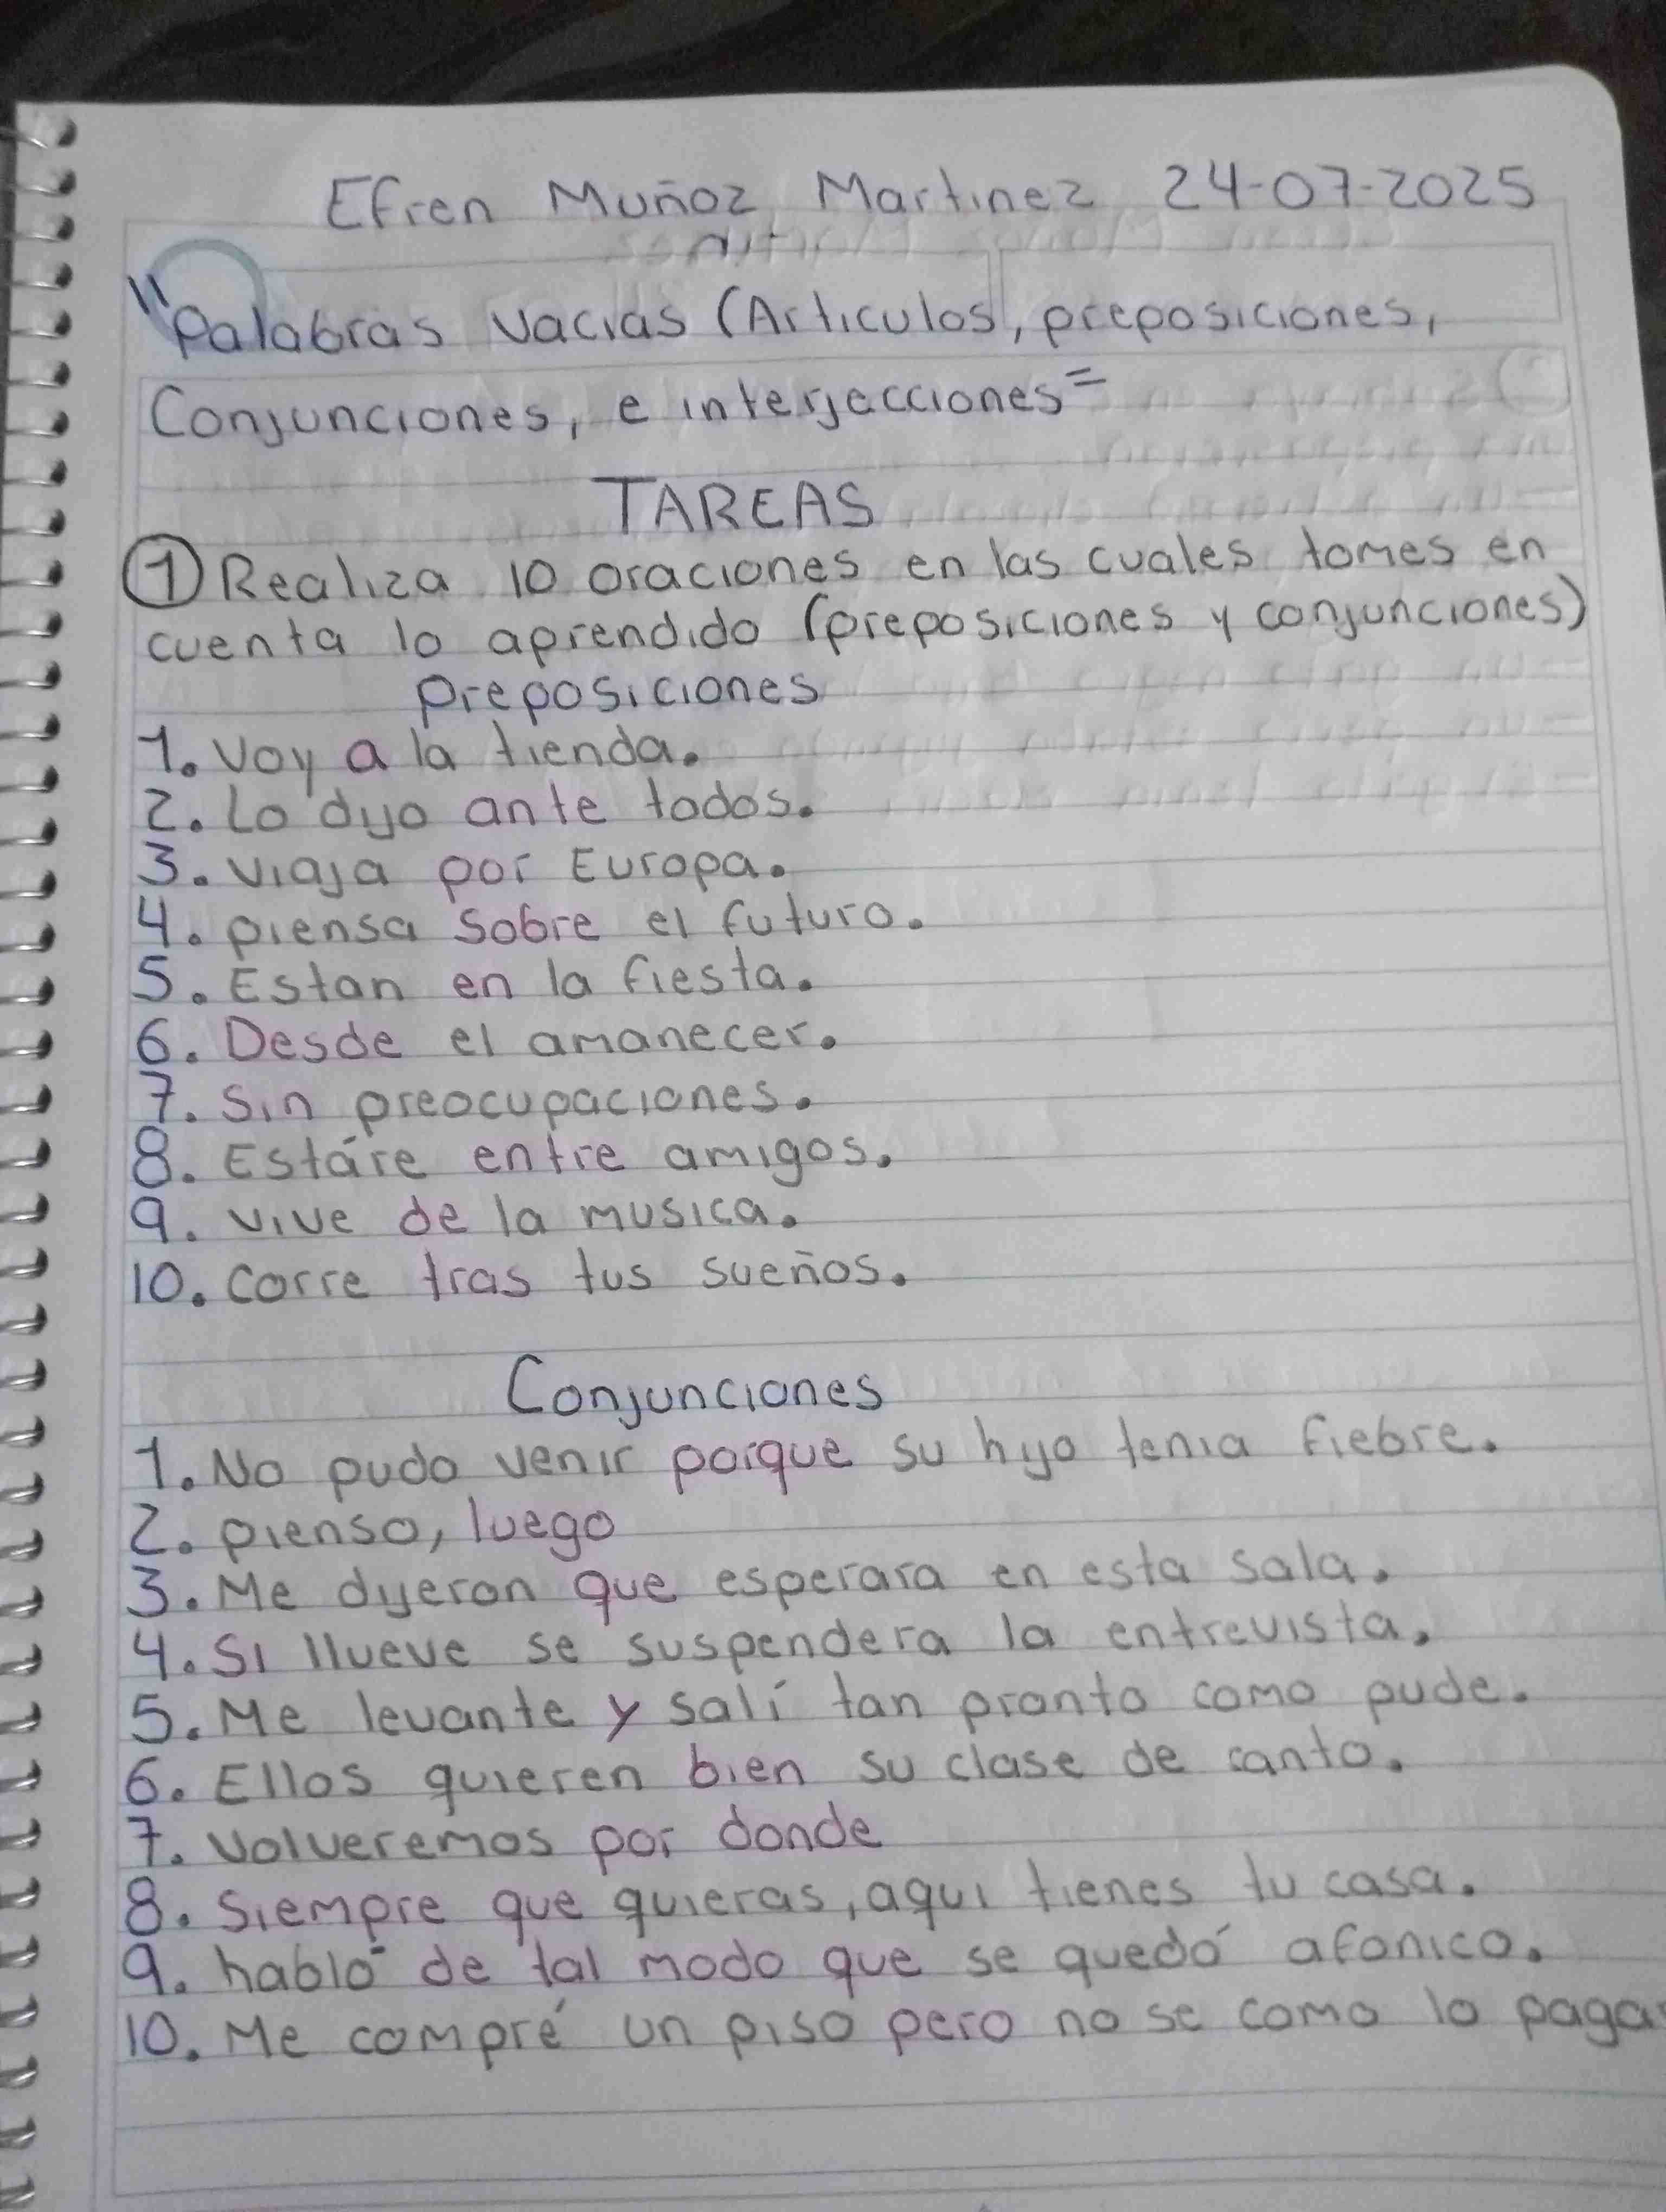 Efren Muñoz Martinez 24-07-2025
"Palabras vacias (Articulos, preposiciones,
Conjunciones, e interjecciones"
TAREAS
① Realiza 10 oraciones en las cuales tomes en
cuenta lo aprendido (preposiciones y conjunciones)
preposiciones
1. Voy a la tienda.
2. Lo dijo ante todos.
3. viaja por Europa.
4. piensa sobre el futuro.
5. Estan en la fiesta.
6. Desde el amanecer.
7. Sin preocupaciones.
8. Estáre entre amigos.
9. vive de la musica.
10. corre tras tus sueños.
Conjunciones
1. No pudo venir porque su hijo tenia fiebre.
2. pienso, luego
3. Me dijeron que esperara en esta sala.
4. Si llueve se suspendera la entrevista.
5. Me levante y salí tan pronto como pude.
6. Ellos quieren bien su clase de canto.
7. volveremos por donde
8. Siempre que quieras, aqui tienes tu casa.
9. habló de tal modo que se quedó afonico.
10. Me compré un piso pero no se como lo paga